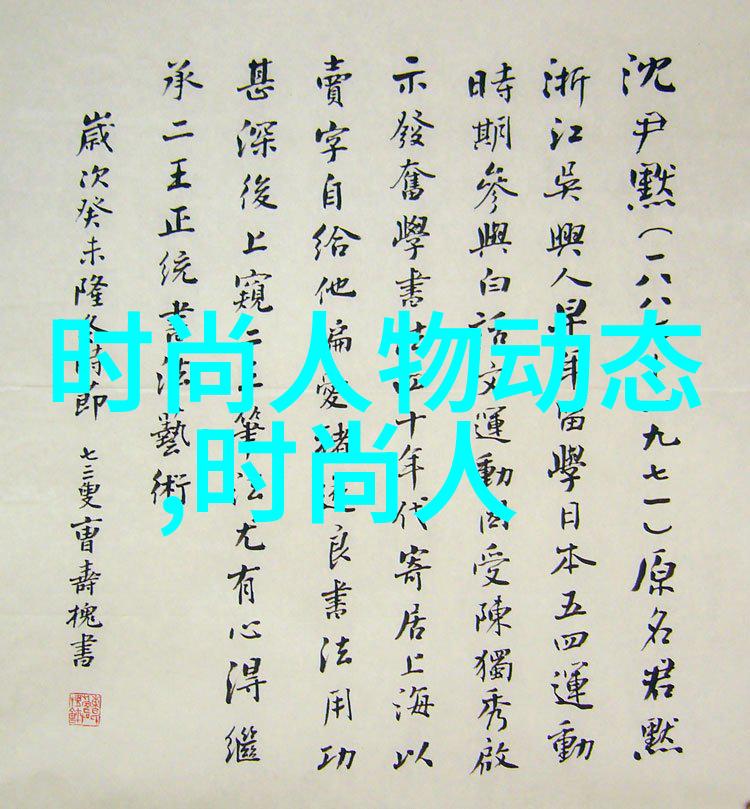 沈尹默(一八八
九七一)原名君默
浙江吳興人早年留學日本五四運動
時期參與白话文運動因受陳獨秀啟
示發奮學書法
十年代寄居上海以
賣字自给他偏愛褚遂良書法用功
甚深後上窺二王筆法尤有心得繼
承二王正統書法藝術
歲次癸未隆冬時節
七三叟曹壽槐書
时尚人物动态
,时尚人